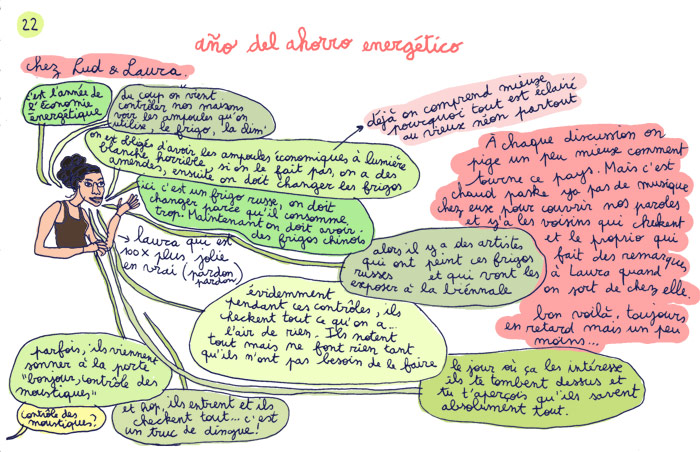 22
año del ahorro energético
chez Lud & Laura.
c'est l'année de
l'économie
énergétique
du coup on vient
contrôler nos maisons
voir les ampoules qu'on
utilise, le frigo, la clim'
déjà on comprend mieux
pourquoi tout est éclairé
au vieux néon partout
on est obligés d'avoir les ampoules économiques à lumière
blanche horrible si on le fait pas, on a des
amendes, ensuite on doit changer les frigos
ici c'est un frigo russe, on doit
changer parce qu'il consomme
trop. Maintenant on doit avoir
des frigos chinois
À chaque discussion on
pige un peu mieux comment
tourne ce pays. Mais c'est
chaud paske ya pas de musique
chez eux pour couvrir nos paroles
et y'a les voisins qui checkent
et le proprio qui
fait des remarques
à Laura quand
on sort de chez elle
bon voilà, toujours
en retard mais un peu
moins...
→ Laura qui est
100x plus jolie
en vrai (pardon
pardon)
alors il y a des artistes
qui ont peint ces frigos
russes et qui vont les
exposer à la biennale
évidemment
pendant ces contrôles, ils
checkent tout ce qu'on a...
l'air de rien. Ils notent
tout mais ne font rien tant
qu'ils n'ont pas besoin de le faire
le jour où ça les intéresse
ils te tombent dessus et
tu t'aperçois qu'ils savent
absolument tout.
parfois, ils viennent
sonner à la porte
"bonjour, contrôle des
moustiques"
contrôle des
moustiques?
et hop, ils entrent et ils
checkent tout... c'est
un truc de dingue!